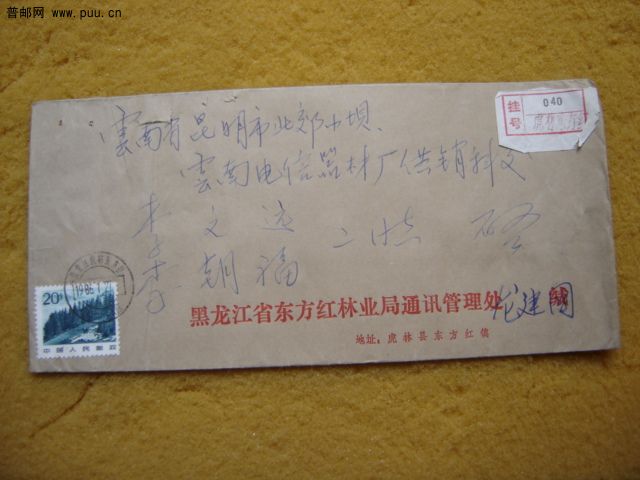 普邮网 www.puu.cn
挂号
040
雲南省昆明市北郊小坝
雲南电信器材厂供销科交
李文远
李朝福
二 收 啓
20分
中国人民邮政
黑龙江省东方红林业局通讯管理处
龙建国
地址:虎林县东方红镇